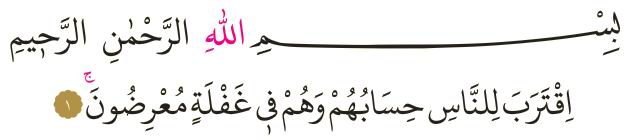 بِسْمِ اللّٰهِ الرَّحْمٰنِ الرَّح۪يمِ
اِقْتَرَبَ لِلنَّاسِ حِسَابُهُمْ وَهُمْ ف۪ي غَفْلَةٍ مُعْرِضُونَۚ ١